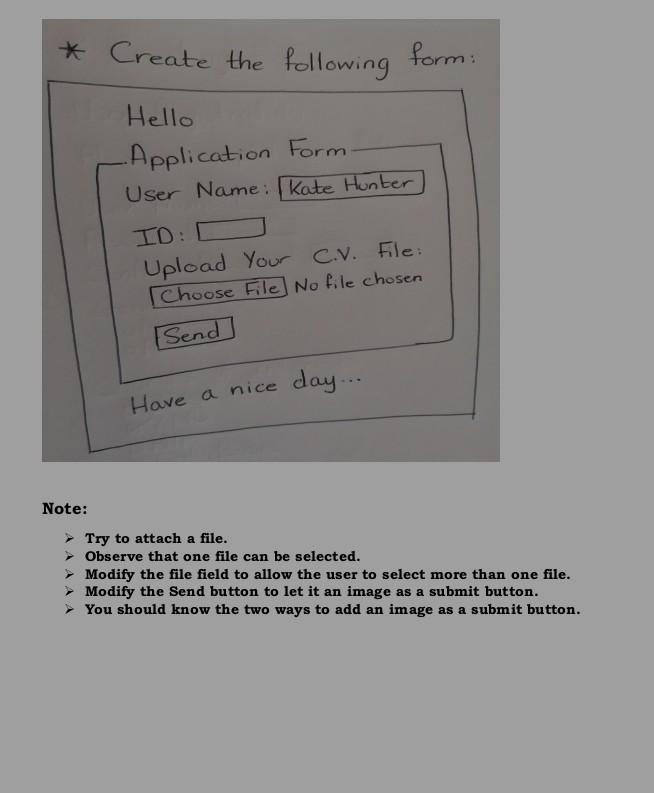 * Create the following form:
Hello
Application Form
User Name: Kate Hunter
ID:
Upload Your C.V. File:
Choose File No file chosen
Send
Have a nice day...
Note:
➢ Try to attach a file.
➢ Observe that one file can be selected.
➢ Modify the file field to allow the user to select more than one file.
➢ Modify the Send button to let it an image as a submit button.
➢ You should know the two ways to add an image as a submit button.